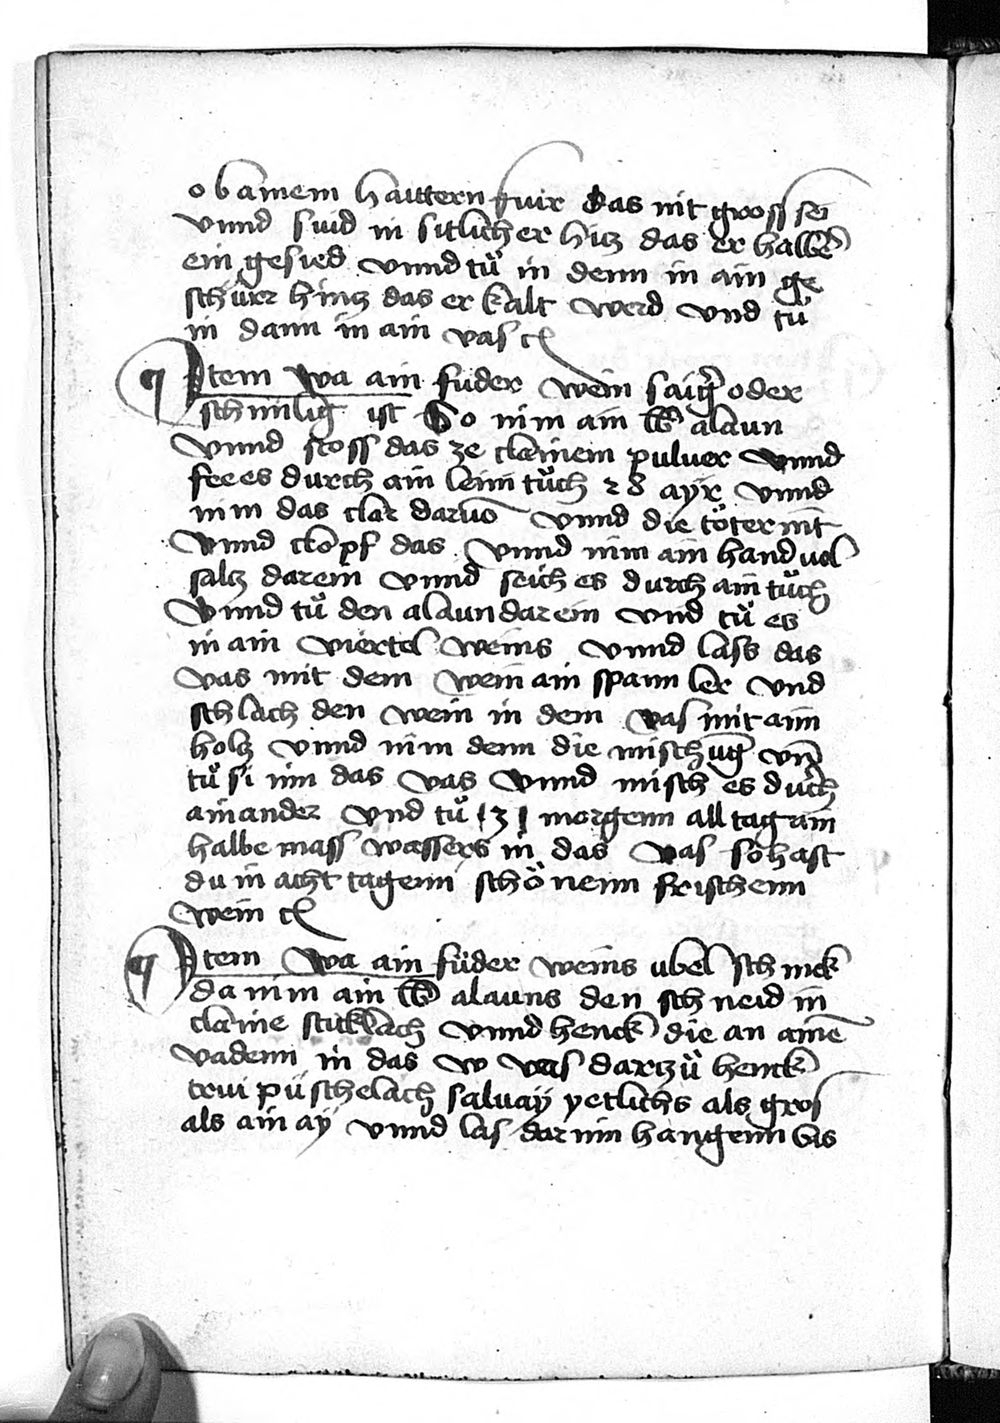 ob ainem haittern fuir das nit gross sei
vnnd suid in sitlicher hitz das er halbe
ein gesied vnnd tů in denn in ain ge
schürr hintz das er kalt werd vnd tů
in dann in ain vas
Item wa ain füder wein saiger oder
schimlig ist So nim ain alaun
vnnd stoss das ze clainem puluer vnnd
fee es durch ain lein tůch 28 ayr vnnd
nim das clar daruo vnnd die töter nit
vnnd clopf das vnnd nim ain hand uol
saltz darein vnnd seich es durch ain tůch
vnnd tů den alaun darein vnd tů es
in ain viertel weins vnnd lass das
vas mit dem wein ain spann ler vnd
schlach den wein in dem vas mit aim
holtz vnnd nim denn die mischug vn
tů si inn das vas vnnd misch es durch
ainander vnd tů morgenn all tag ain
halbe mass wassers in das vas so hast
du in acht tagenn schönenn frischenn
wein
Item wa ain füder weins ubel schmek
da nim ain alauns den schneid in
claine stucklach vnnd henck die an aine
vadenn in das w vas dartzů henck
trui püschelach saluaÿ yetlichs als gros
als ain aÿ vnnd las dar inn hangenn bis